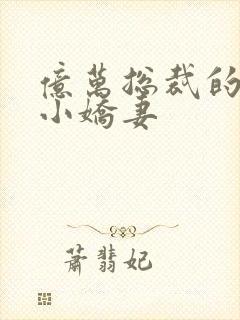 億萬總裁的
小嬌妻
蕭翡妃